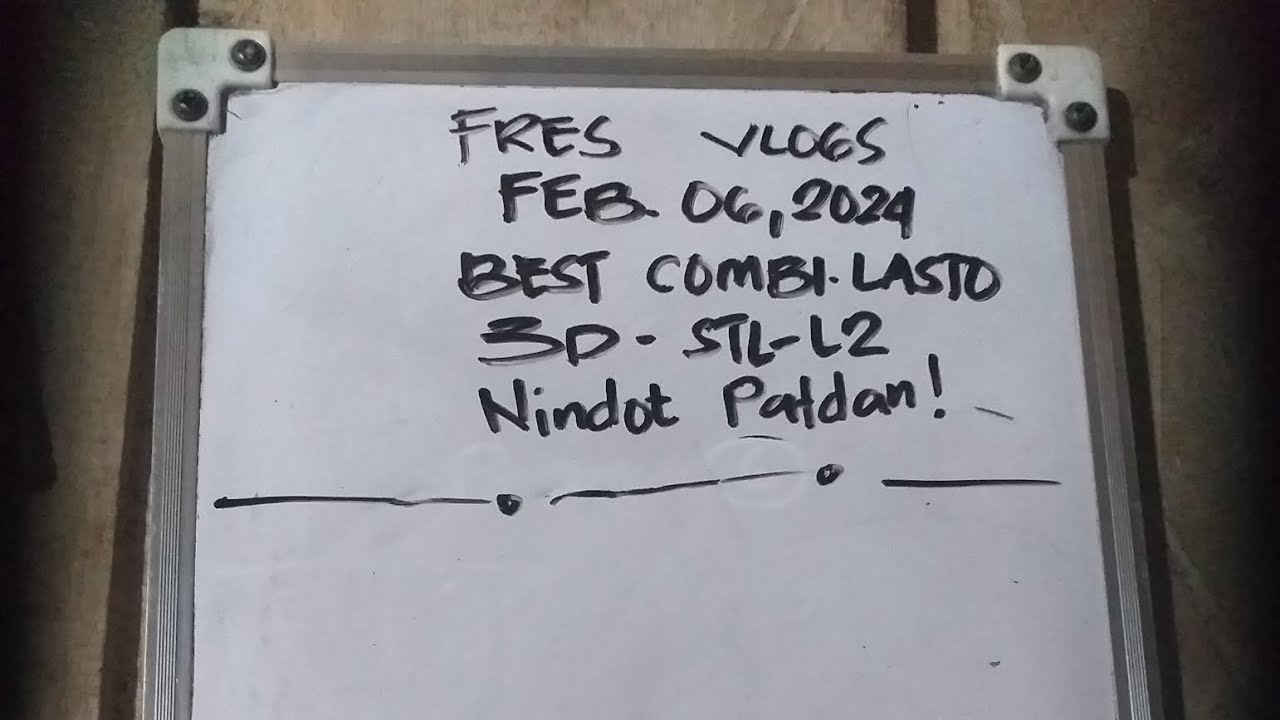 FRES VLOGS
FEB. 06, 2024
BEST COMBI. LASTO
3D - STL-L2
Nindot Patdan!